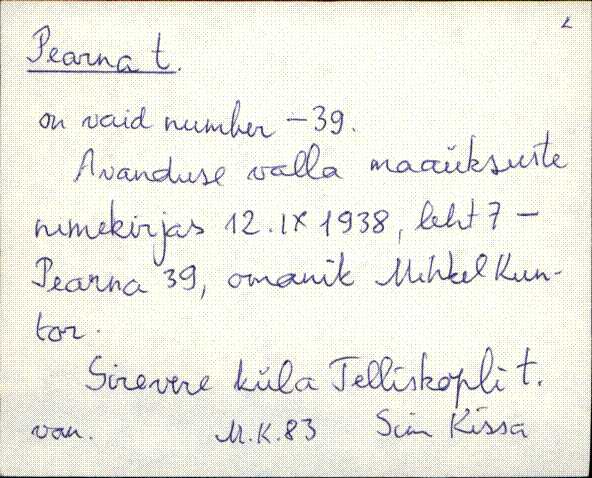 Pearna t.
on vaid number – 39.
Avanduse valla maaüksuste
nimekirjas 12. IX 1938, leht 7 –
Pearna 39, omanik Mihkel Kun-
tor.
Sirevere küla Telliskopli t.
van. M.K. 83 Siim Kissa